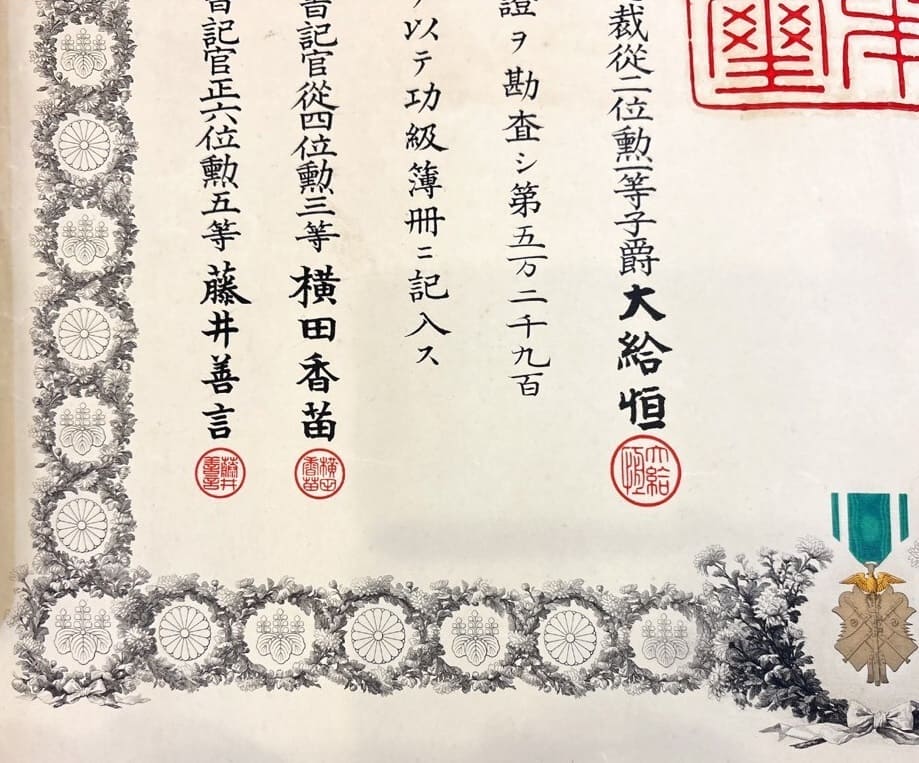 裁從二位勳一等子爵大給恒
大給恒
證ヲ勘査シ第五万二千九百
以テ功級簿冊ニ記入ス
書記官從四位勳三等横田香苗
横田香苗
書記官正六位勳五等藤井善言
藤井善言